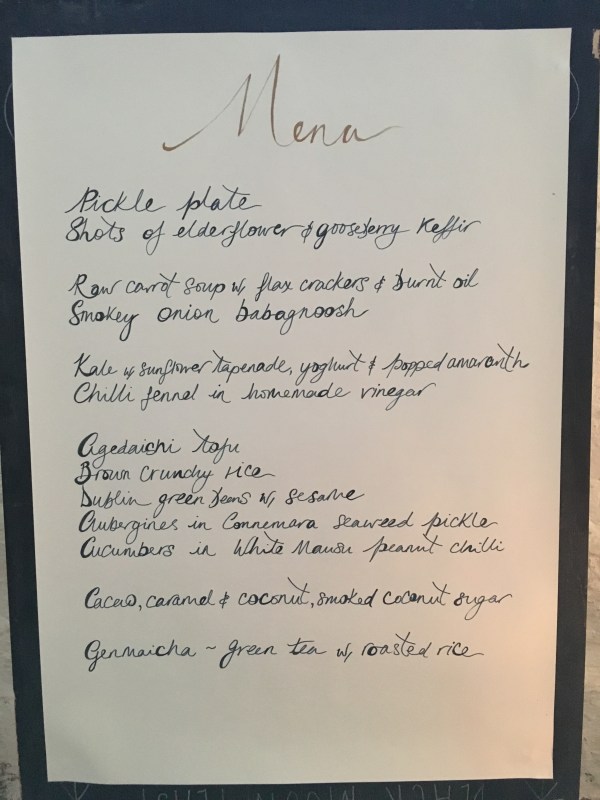 Menu
Pickle plate
Shots of elderflower & gooseberry Keffir
Raw carrot soup w/ flax crackers & burnt oil
Smokey onion babagnoosh
Kale w sunflower tapenade, yoghurt & popped amaranth
Chilli fennel in homemade vinegar
Agedaichi tofu
Brown crunchy rice
Dublin green beans w/ sesame
Aubergines in Connemara seaweed pickle
Cucumbers in White Mausu peanut chilli
Cacao, caramel & coconut, smoked coconut sugar
Genmaicha ~ green tea w/ roasted rice